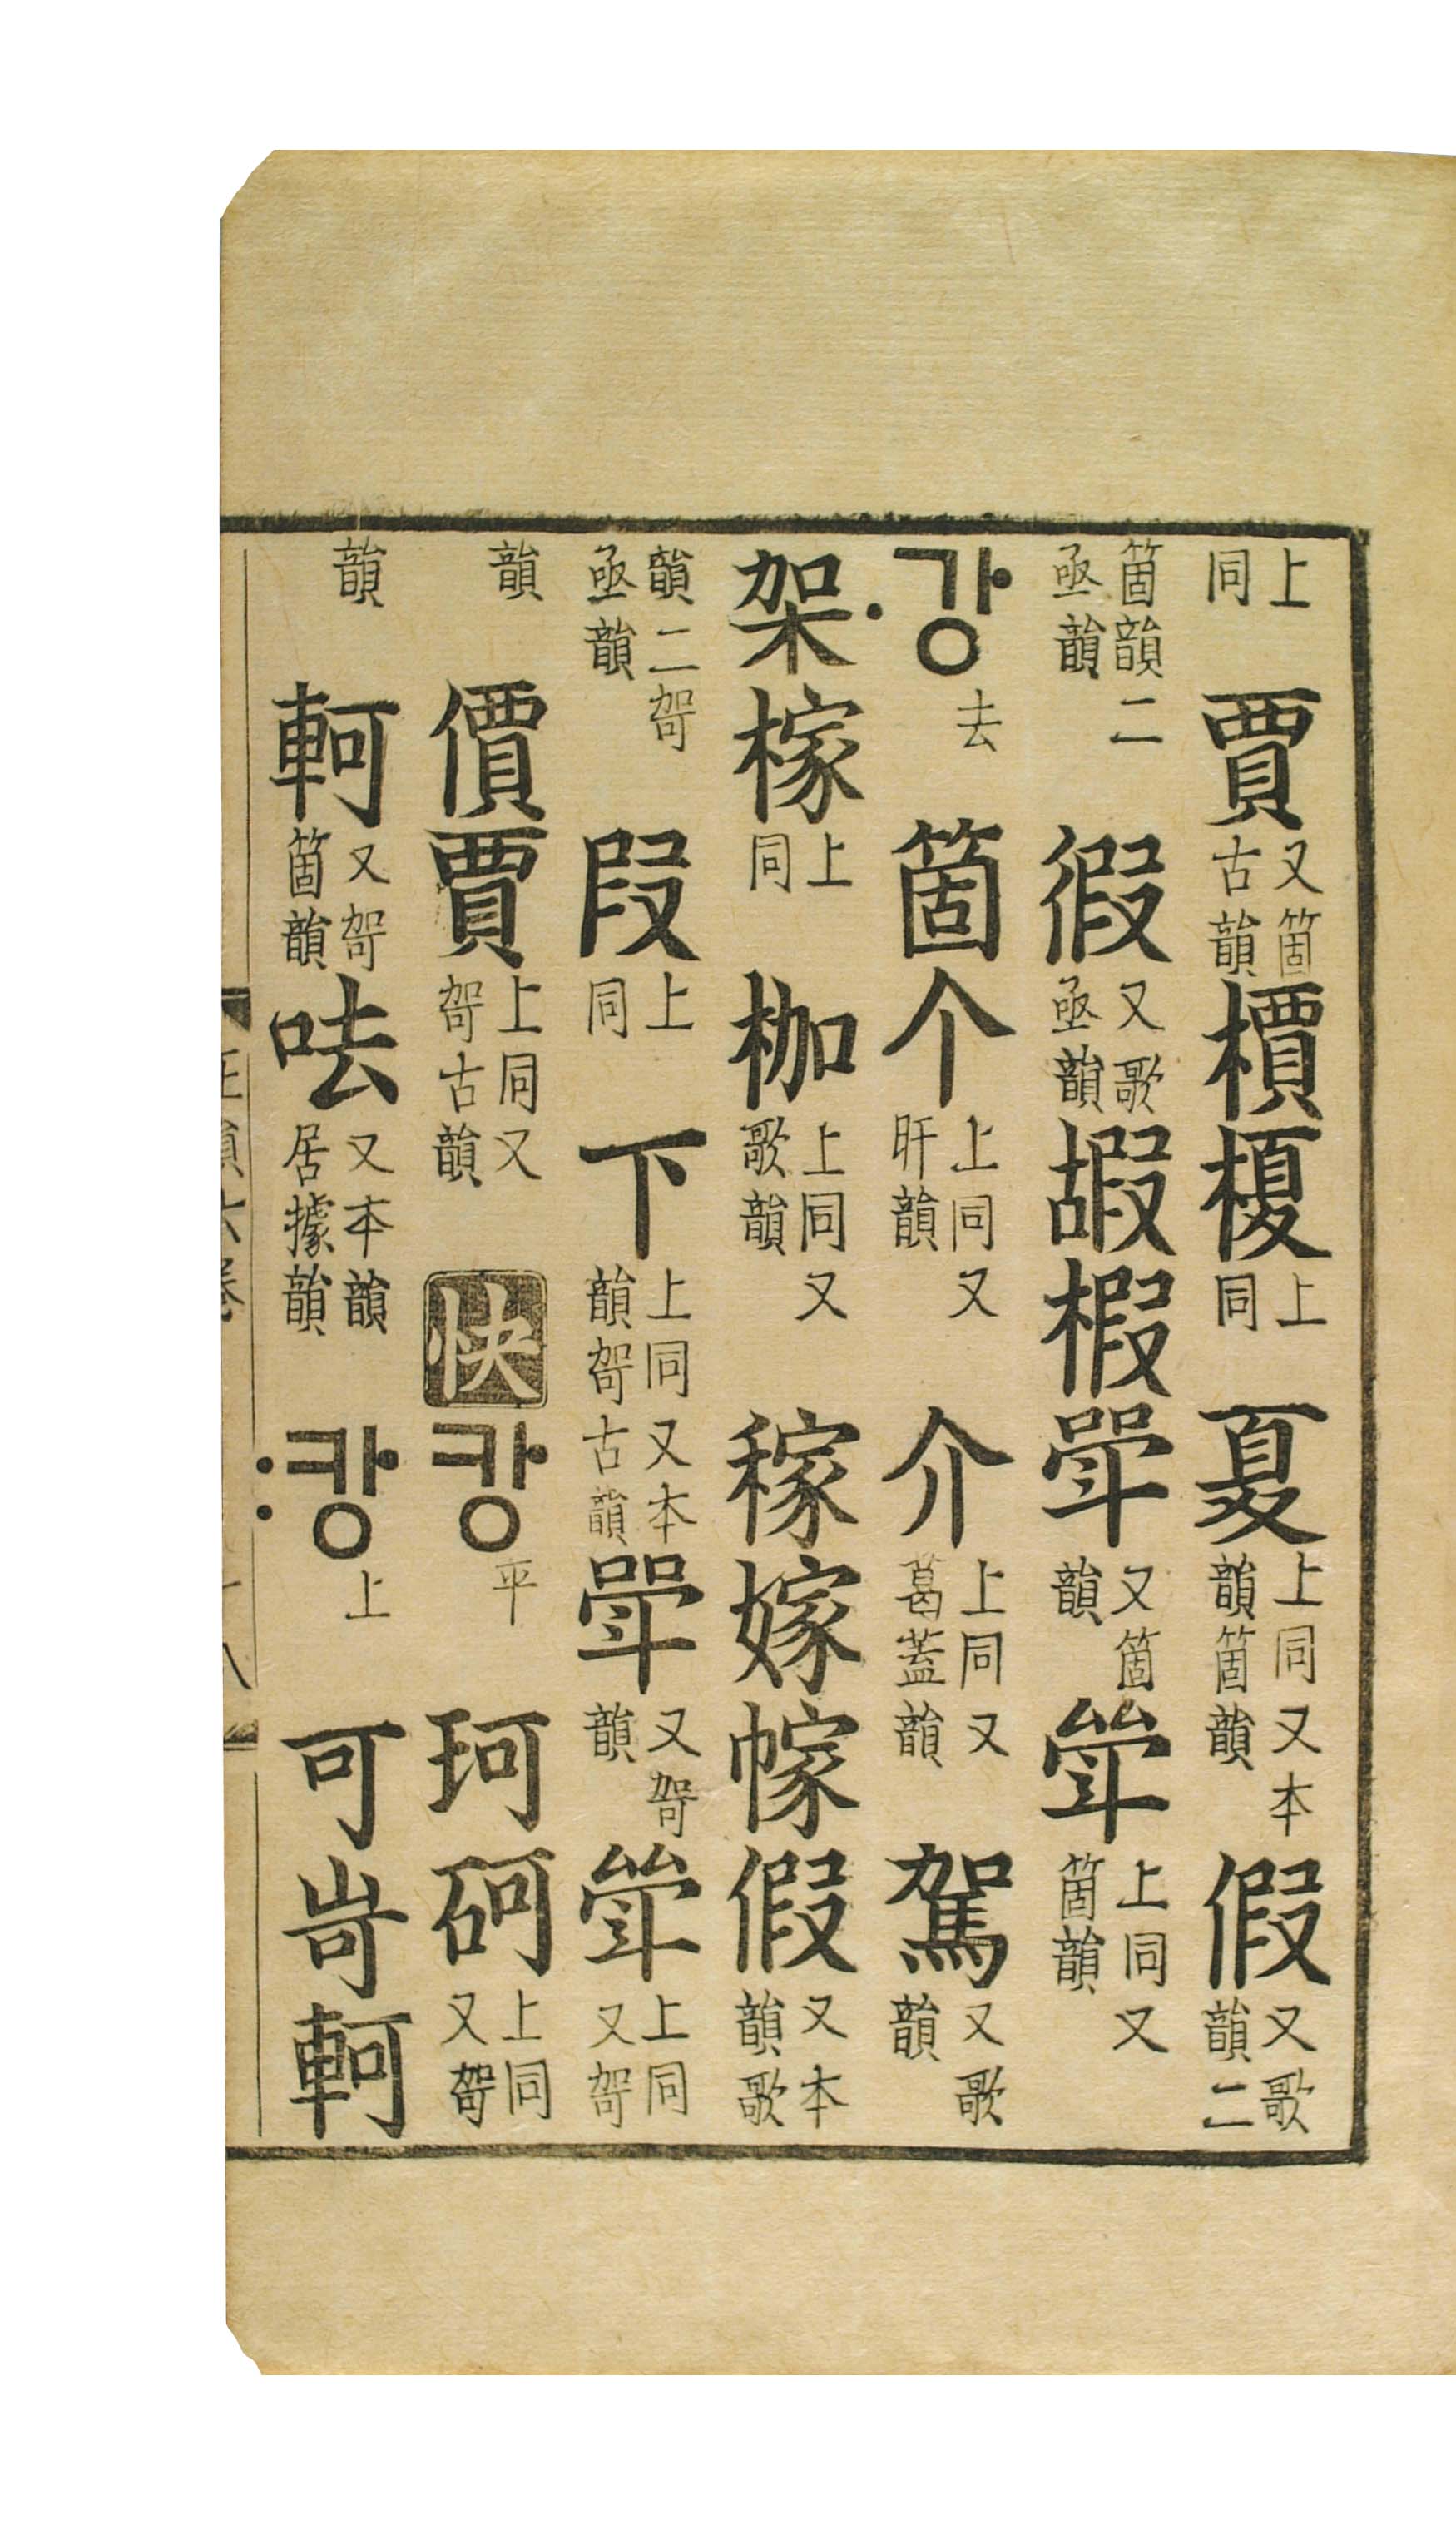 上同 賈又箇古韻檟榎上同 夏上同又本韻箇韻 假又歌韻二
箇韻二亟韻 假又歌亟韻嘏椵斝又箇韻 斝上同又箇韻
강去 箇个上同又旰韻 介上同又葛蓋韻 駕又歌韻
架榢上同 枷上同又歌韻 稼嫁幏假又本韻歌
韻二哿亟韻 叚上同 下上同又本韻哿古韻斝又哿韻 斝上同又哿
韻 價賈上同又哿古韻 快 캉平 珂砢上同又哿
韻 軻又哿箇韻呿又本韻居據韻 캉上 可岢軻